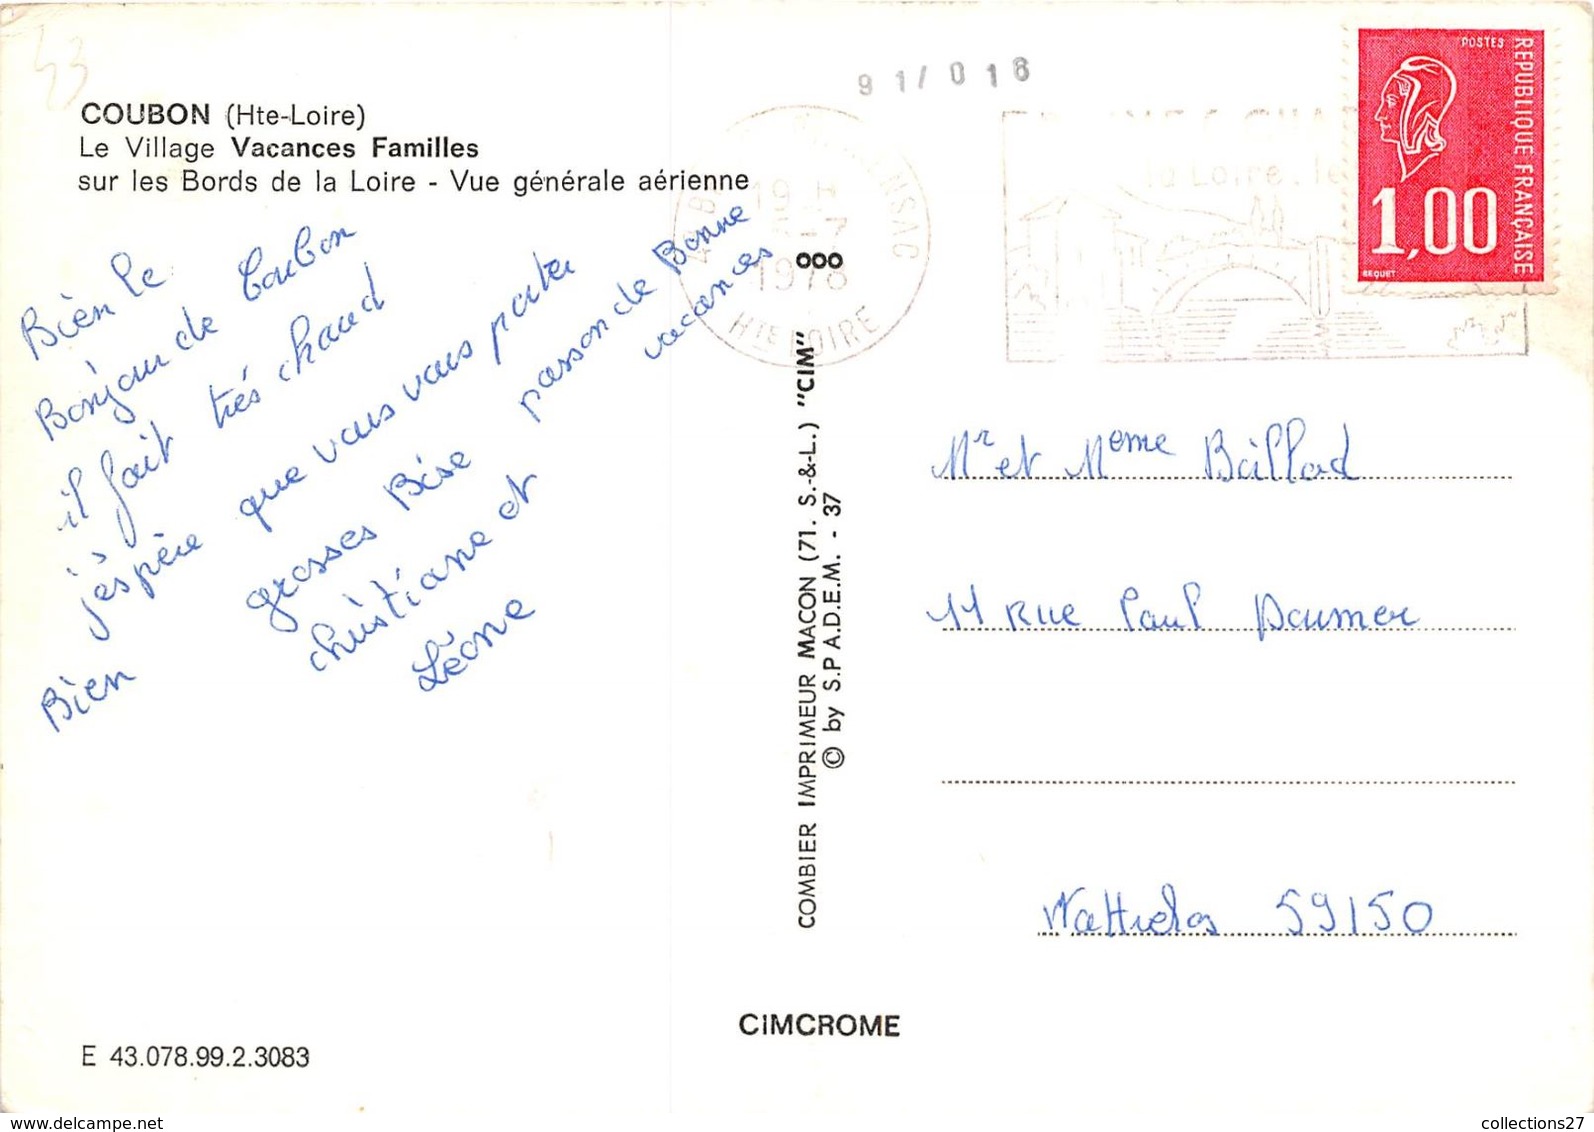 43
COUBON (Hte-Loire)
Le Village Vacances Familles
sur les Bords de la Loire - Vue générale aérienne
Bien le
Bonjour de Coubon
il fait trés chaud
j'éspère que vous vous porter
Bien
grosses Bise
passon de Bonne
vacances
christiane et
Léone
E 43.078.99.2.3083
COMBIER IMPRIMEUR MACON (71. S.-&-L.) "CIM"
© by S.P.A.D.E.M. - 37
CIMCROME
91/018
19 H
-7
1978
NSAC
Hte LOIRE
la Loire. le
POSTES
REPUBLIQUE FRANÇAISE
1,00
BEQUET
Mr et Meme Baillad
11 Rue Paul Doumer
Wattrelos 59150
collections27